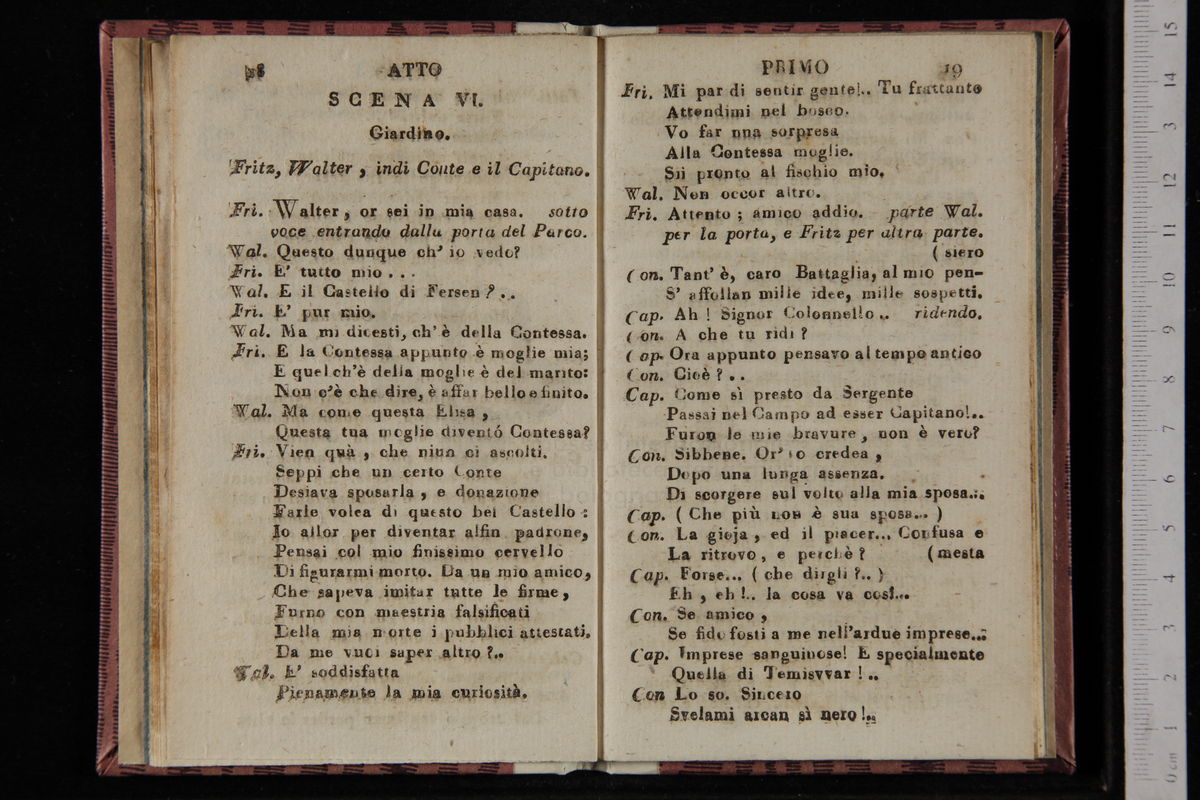 18 ATTO
SCENA VI.
Giardino.
Fritz, Walter, indi Conte e il Capitano.
Fri. Walter, or sei in mia casa. sotto
voce entrando dalla porta del Parco.
Wal. Questo dunque ch' io vedo?
Fri. E' tutto mio . . .
Wal. E il Castello di Fersen ? . .
Fri. E' pur mio.
Wal. Ma mi dicesti, ch' è della Contessa.
Fri. E la Contessa appunto è moglie mia;
E quel ch'è della moglie è del marito:
Non c'è che dire, è affar bello e finito.
Wal. Ma come questa Elisa ,
Questa tua moglie diventó Contessa?
Fri. Vien quà , che niun ci ascolti.
Seppi che un certo Conte
Desiava sposarla , e donazione
Farle volea di questo bel Castello :
Io allor per diventar alfin padrone,
Pensai col mio finissimo cervello
Di figurarmi morto. Da un mio amico,
Che sapeva imitar tutte le firme,
Furno con maestria falsificati
Della mia morte i pubblici attestati.
Da me vuoi saper altro ?..
Wal. E' soddisfatta
Pienamente la mia curiosità.
PRIMO 19
Fri. Mi par di sentir gente!.. Tu frattanto
Attendimi nel bosco.
Vo far una sorpresa
Alla Contessa moglie.
Sii pronto al fischio mio.
Wal. Non occor altro.
Fri. Attento ; amico addio. parte Wal.
per la porta, e Fritz per altra parte.
( siero
Con. Tant' è, caro Battaglia, al mio pen-
S' affollan mille idee, mille sospetti.
Cap. Ah ! Signor Colonnello .. ridendo.
Con. A che tu ridi ?
Cap. Ora appunto pensavo al tempo antico
Con. Cioè ? . .
Cap. Come sì presto da Sergente
Passai nel Campo ad esser Capitano!..
Furon le mie bravure, non è vero?
Con. Sibbene. Or' io credea ,
Dopo una lunga assenza.
Di scorgere sul volto alla mia sposa...
Cap. ( Che più non è sua sposa... )
Con. La gioja , ed il piacer... Confusa e
La ritrovo , e perchè ? ( mesta
Cap. Forse... ( che dirgli ?.. )
Eh , eh !.. la cosa va così...
Con. Se amico ,
Se fido fosti a me nell'ardue imprese...
Cap. Imprese sanguinose! E specialmente
Quella di Temisvvar ! ..
Con Lo so. Sincero
Svelami arcan sì nero !..